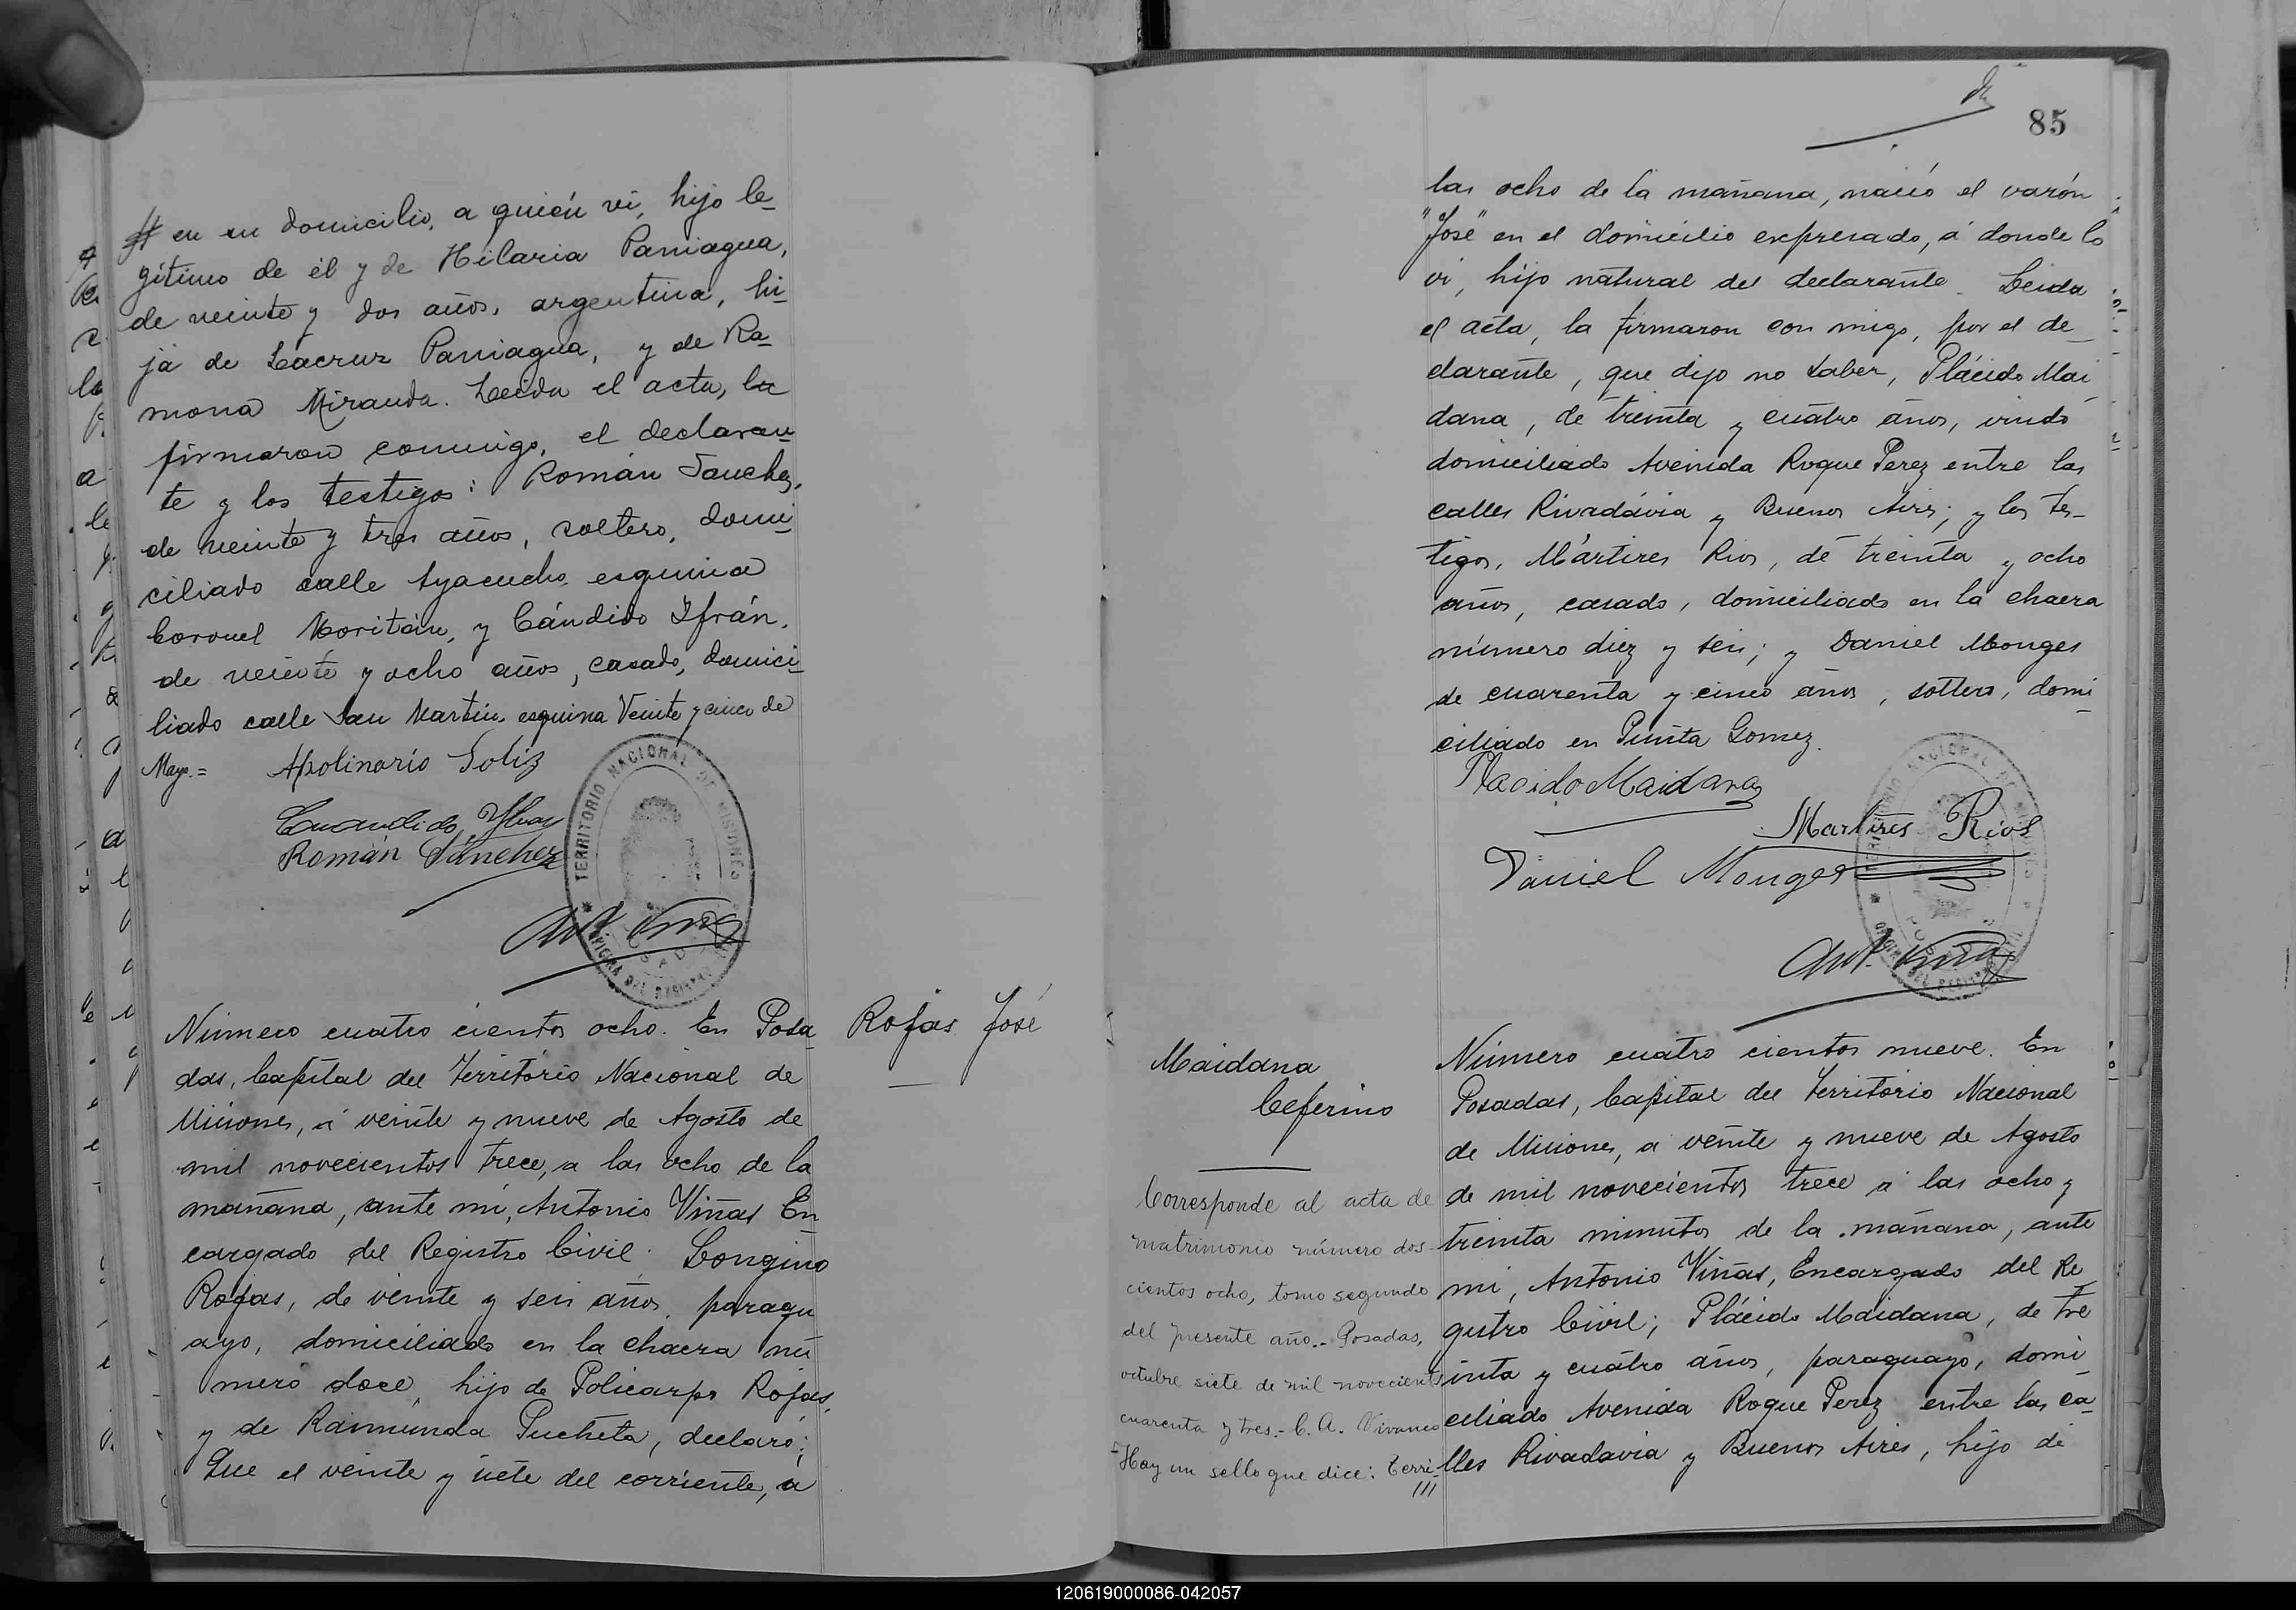 en su domicilio, a quién vi, hijo le-
gitimo de él y de Hilaria Paniagua,
de veinte y dos años, argentina, hi-
ja de Lacruz Paniagua, y de Ra-
mona Miranda. Leida el acta, la
firmaron conmigo, el declaran-
te y los testigos: Román Sanchez,
de veinte y tres años, soltero, domi-
ciliado calle Ayacucho, esquina
Coronel Moritán, y Cándido Ifrán,
de veinte y ocho años, casado, domici-
liado calle San Martin, esquina Veinte y cinco de
Mayo.=
Apolinario Soliz
Román Sánchez
TERRITORIO NACIONAL DE MISIONES
Ant. Viña
Número cuatro cientos ocho. En Posa-
das, Capital del Territorio Nacional de
Misiones, á veinte y nueve de Agosto de
mil novecientos trece, a las ocho de la
mañana, ante mi, Antonio Viñas En-
cargado del Registro Civil. Longino
Rojas, de veinte y seis años, paragu-
ayo, domiciliado en la chacra nú-
mero doce, hijo de Policarpo Rojas,
y de Raimunda Pucheta, declaró:
Que el veinte y siete del corriente, á
Rojas José
85
las ocho de la mañana, nació el varón
"José" en el domicilio expresado, á donde lo
vi, hijo natural del declarante. Leida
el acta, la firmaron con migo, por el de-
clarante, que dijo no saber, Plácido Mai-
dana, de treinta y cuatro años, viudo
domiciliado Avenida Roque Perez entre las
calles Rivadávia y Buenos Aires; y los tes-
tigos, Mártires Rios, de treinta y ocho
años, casado, domiciliado en la chacra
número diez y seis; y Daniel Monges
de cuarenta y cinco años, soltero, domi-
ciliado en Punta Gomez.
Placido Maidana
Martires Rios
Daniel Monges
Ant. Viña
Maidana
Ceferino
Corresponde al acta de
matrimonio número dos-
cientos ocho, tomo segundo
del presente año.- Posadas,
octubre siete de mil novecientos
cuarenta y tres.- C. A. Vivanco
-Hay un sello que dice: Terri-
Número cuatro cientos nueve. En
Posadas, Capital del Territorio Nacional
de Misiones, a veinte y nueve de Agosto
de mil novecientos trece á las ocho y
treinta minutos de la mañana, ante
mi, Antonio Viñas, Encargado del Re-
gistro Civil; Plácido Maidana, de tre-
inta y cuatro años, paraguayo, domi-
ciliado Avenida Roque Perez entre las ca-
lles Rivadavia y Buenos Aires, hijo de
120619000086-042057